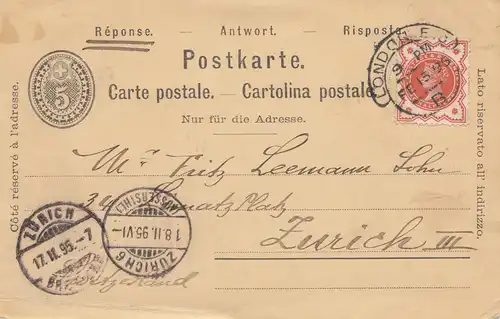 Réponse. — Antwort. — Risposta
Postkarte.
Carte postale. — Cartolina postale
Nur für die Adresse.
5
Côté réservé à l'adresse.
Lato riservato all' indirizzo.
LONDON. E.
9 PM
95
B
Mr Fritz Leemann Sohn
Platz
Zurich III
Switzerland
ZÜRICH
17. II. 95.–7
AUSSERSIHL
18. II. 95. VI–
ZÜRICH 6